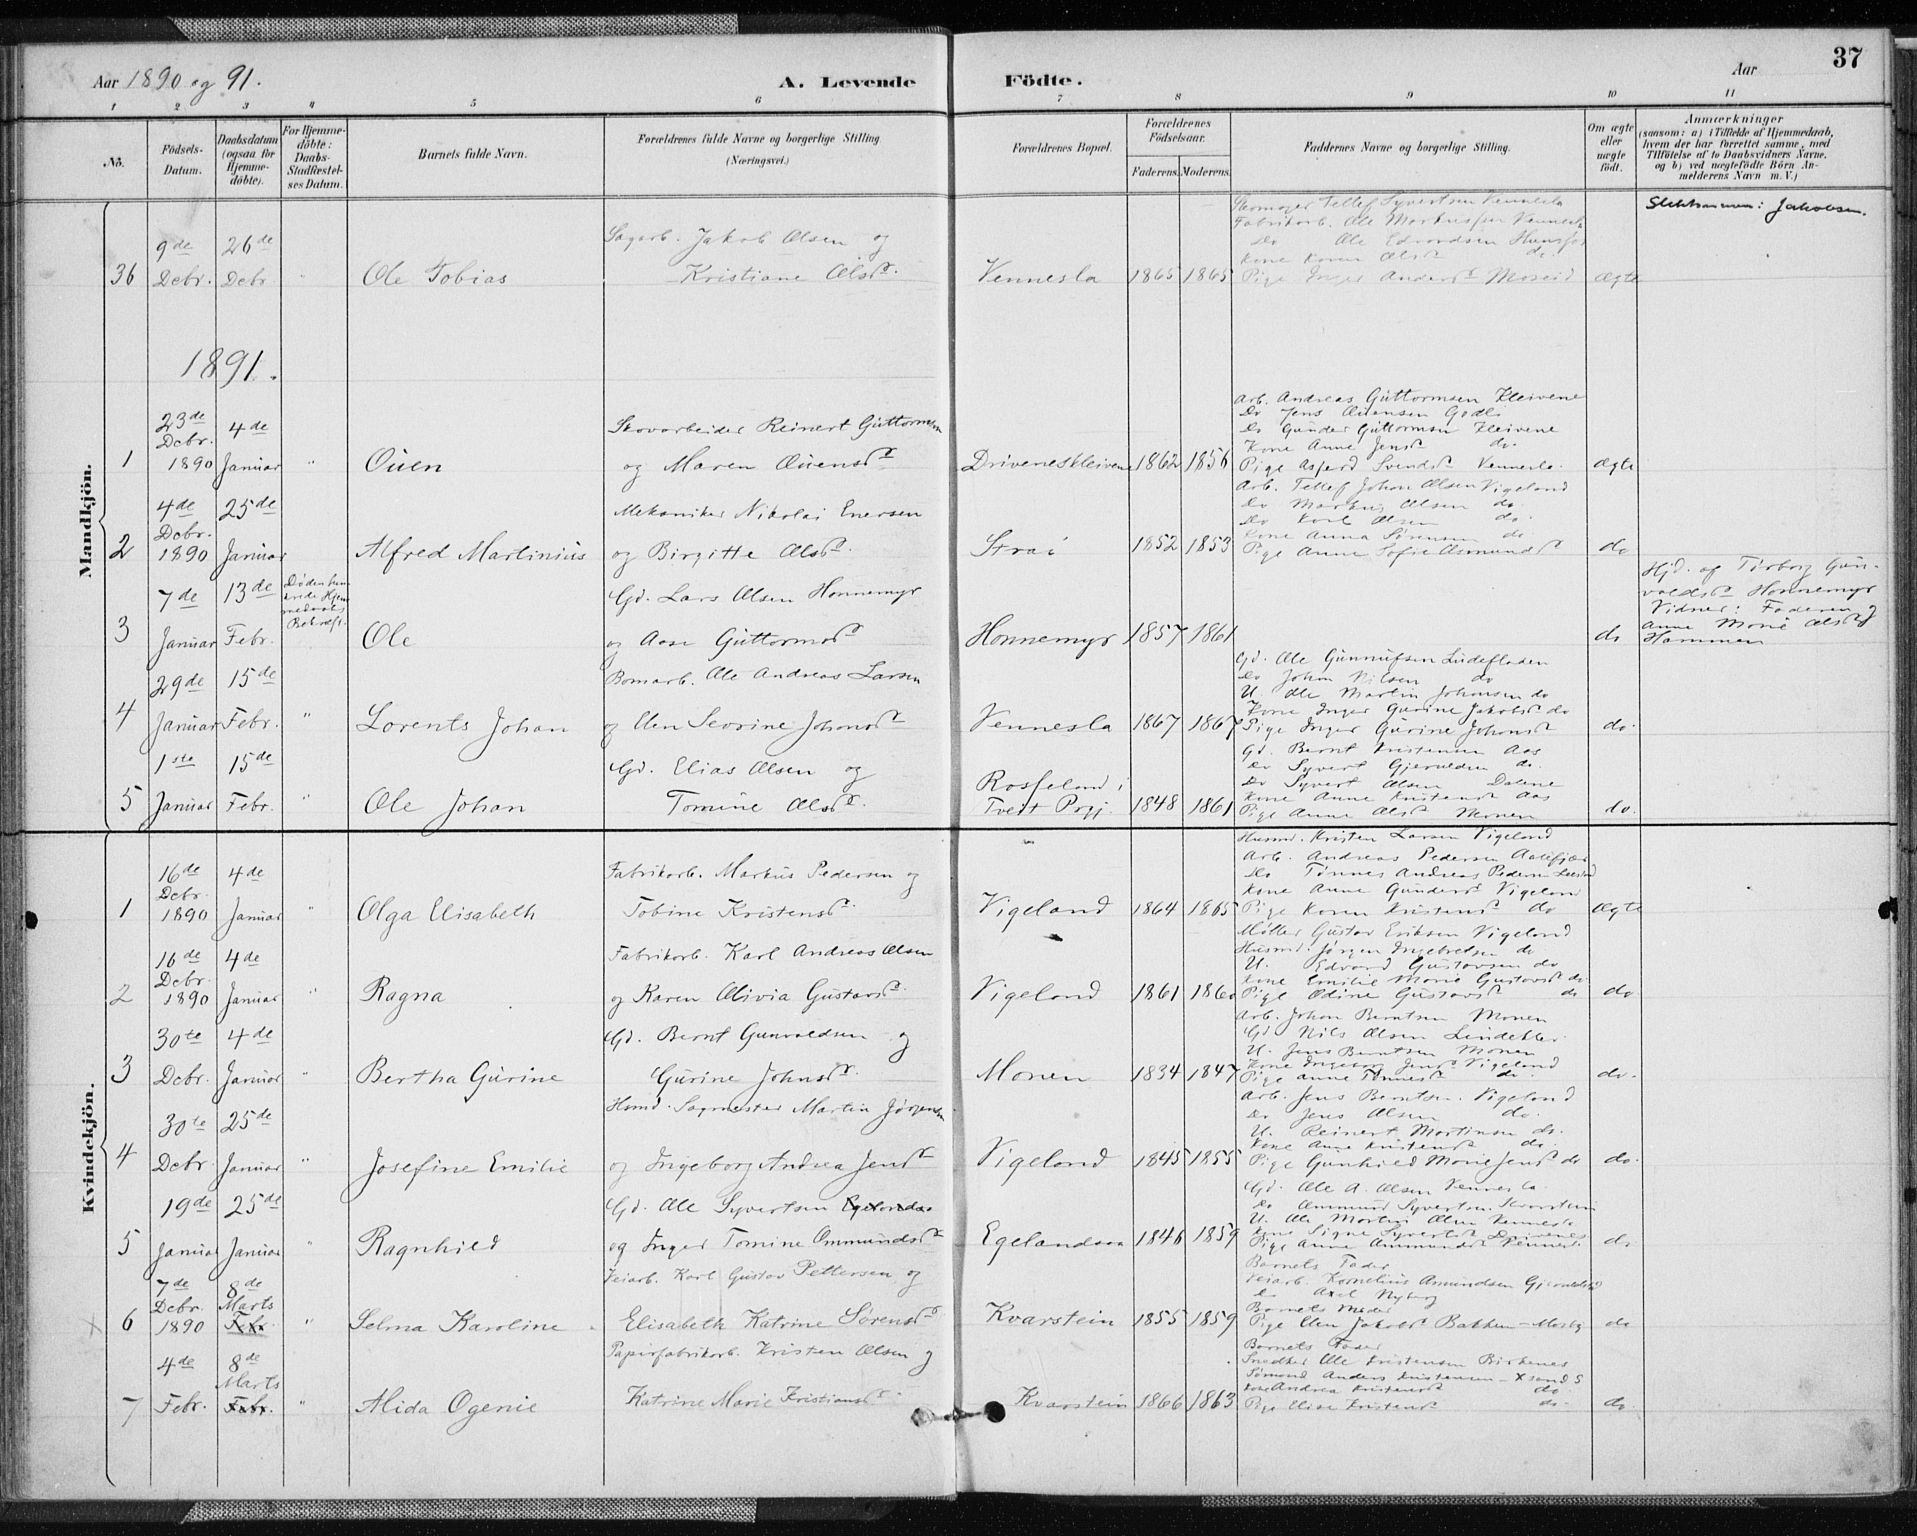 Aar 1890 og 91.
A. Levende Födte.
Aar
37
1 2 3 4 5 6 7 8 9 10 11
No.
Födsels-Datum.
Daabsdatum (ogsaa for Hjemme-döbte).
For Hjemme-döbte: Daabs-Stadfæstel-ses Datum.
Barnets fulde Navn.
Forældrenes fulde Navne og borgerlige Stilling (Næringsvei.)
Forældrenes Bopæl.
Forældrenes Födselsaar.
Faderens. Moderens.
Faddernes Navne og borgerlige Stilling.
Om ægte eller uægte födt.
Anmærkninger
(saasom: a) i Tilfælde af Hjemmedaab, hvem der har forrettet samme, med Tilföielse af to Daabsvidners Navne, og b) ved uægtefödte Börn An-melderens Navn m. V.)
Mandkjön.
36
9de Debr.
26de Debr.
"
Ole Tobias
Sagarb. Jakob Olsen og
Kristiane Olsdr.
Vennesla
1865 1865
Tellef Syvertsen Vennesla
Fabrikarb. Ole Markussen Vennesla
Do Ole Edvardsen Hunsfos
Kone Karen Olsdr do
Pige Inger Andersdr Moseid
Ægte
Slektsnavn: Jakobsen.
1891.
1
23de Debr. 1890
4de Januar
"
Ouen
Skovarbeider Reinert Guttormsen
og Maren Ouensdr
Drivenes Kleivene
1862 1856
Arb. Andreas Guttormsen Kleivene
Do Jens Ouensen
Do Gunder Guttormsen Kleivene
Kone Anne Jensdr do.
Pige Asperd Svendsdr Vennesla.
Ægte
2
4de Debr. 1890
25de Januar
Alfred Martinius
Mekaniker Nikolai Enersen
og Birgitte Olsdr.
Strai
1852 1853
Arb. Tellef Johan Olsen Vigeland
Do Markus Olsen do
Do Karl Olsen do.
Kone Anna Sørensen do
Pige Anne Sofie Asmundsdr
do
3
7de Januar
13de Febr.
Ole
Gd. Lars Olsen Honnemyr
og Aase Guttormsdr
Honnemyr
1857 1861
do
Hjd. af Torborg Gun-
voldsdr Honnemyr
Vidner: Faderen og
Anne Marie Olsdr
Hammen
4
29de Januar
15de Febr.
"
Lorents Johan
Bomarb. Ole Andreas Larsen
og Elen Severine Johnsdr
Vennesla
1867 1867
Gd. Ole Gunnufsen Lindefladen
Do John Nilsen do
U. Ole Martin Johansen do
Kone Inger Gurine Jakobsdr do
Pige Inger Gurine Johnsdr
do.
5
1ste Januar
15de Febr.
"
Ole Johan
Gd. Elias Olsen og
Tomine Olsdr.
Rosseland i
Tveit Prgj.
1848 1861
Gd. Bernt Kristensen Aas
Do Syvert Gjeruldsen do.
Do Syvert Olsen Dalene
Kone Anne Kristensdr Aas
Pige Anne Olsdr Monen
do.
Kvindekjön.
1
16de Debr. 1890
4de Januar
"
Olga Elisabeth
Fabrikarb. Markus Pedersen og
Tobine Kristensdr.
Vigeland
1864 1865
Husmd. Kristen Larsen Vigeland
Arb. Andreas Pedersen
Do Tønnes Andreas Pedersen
Kone Anne Gundersdr Vigeland
Pige Karen Kristensdr do
Ægte
2
16de Debr. 1890
4de Januar
"
Ragna
Fabrikarb. Karl Andreas Olsen
og Karen Olivia Gustavsdr.
Vigeland
1861 1860
Møller Gustav Eriksen Vigeland
Husmd. Jørgen Ingebretsen do
U. Edvard Gustavsen do
Kone Emilie Marie Gustavsdr do
Pige Odine Gustavsdr do
do
3
30te Debr.
4de Januar
"
Bertha Gurine
Gd. Bernt Gunvaldsen og
Gurine Johnsdr.
Monen
1834 1847
Arb. Johan Berntsen Monen
Gd Nils Olsen
U. Jens Berntsen Monen
Kone Ingeborg Jensdr Vigeland
Pige Anne Tønnesdr do.
do.
4
30te Debr.
25de Januar
"
Josefine Emilie
Husmd. Sagmester Martin Jørgensen
og Ingeborg Andrea Jensdr
Vigeland
1845 1855
Arb. Jens Berntsen Vigeland
Do Jens Olsen do.
U. Reinert Martinsen do.
Kone Anne Kristensdr do.
Pige Gunhild Marie Jensdr do
do.
5
19de Januar
25de Januar
"
Ragnhild
Gd. Ole Syvertsen Egelandsaa
og Inger Tomine Ommundsdr
Egelandsaa
1846 1859
Gd. Ole A. Olsen Vennesla
Do Ommund Syvertsen Kvarstein
U. Ole Martin Olsen Vennesla
Kone Signe Syvertsdr Drivenes
Pige Anne Ommundsdr Vennesla
do
6
7de Debr. 1890
8de Marts
Febr.
"
Selma Karoline
Veiarb. Karl Gustav Pettersen og
Elisabeth Katrine Sørensdr
Kvarstein
1855 1859
Barnets Fader
Veiarb. Kornelius Amundsen
Do Axel Nyberg
Barnets Moder
Pige Elen Jakobsdr Bakken - Mosby
do
7
4de Febr.
8de Marts
Febr.
"
Alida Ogenie
Papirfabrikarb. Kristen Olsen og
Katrine Marie Kristiansdr
Kvarstein
1866 1863
Barnets Fader
Snedker Ole Kristensen Birkenes
Sømand Anders Kristensen - Xsand S
Kone Andrea Kristensdr do.
Pige Elise Kristensdr do.
do